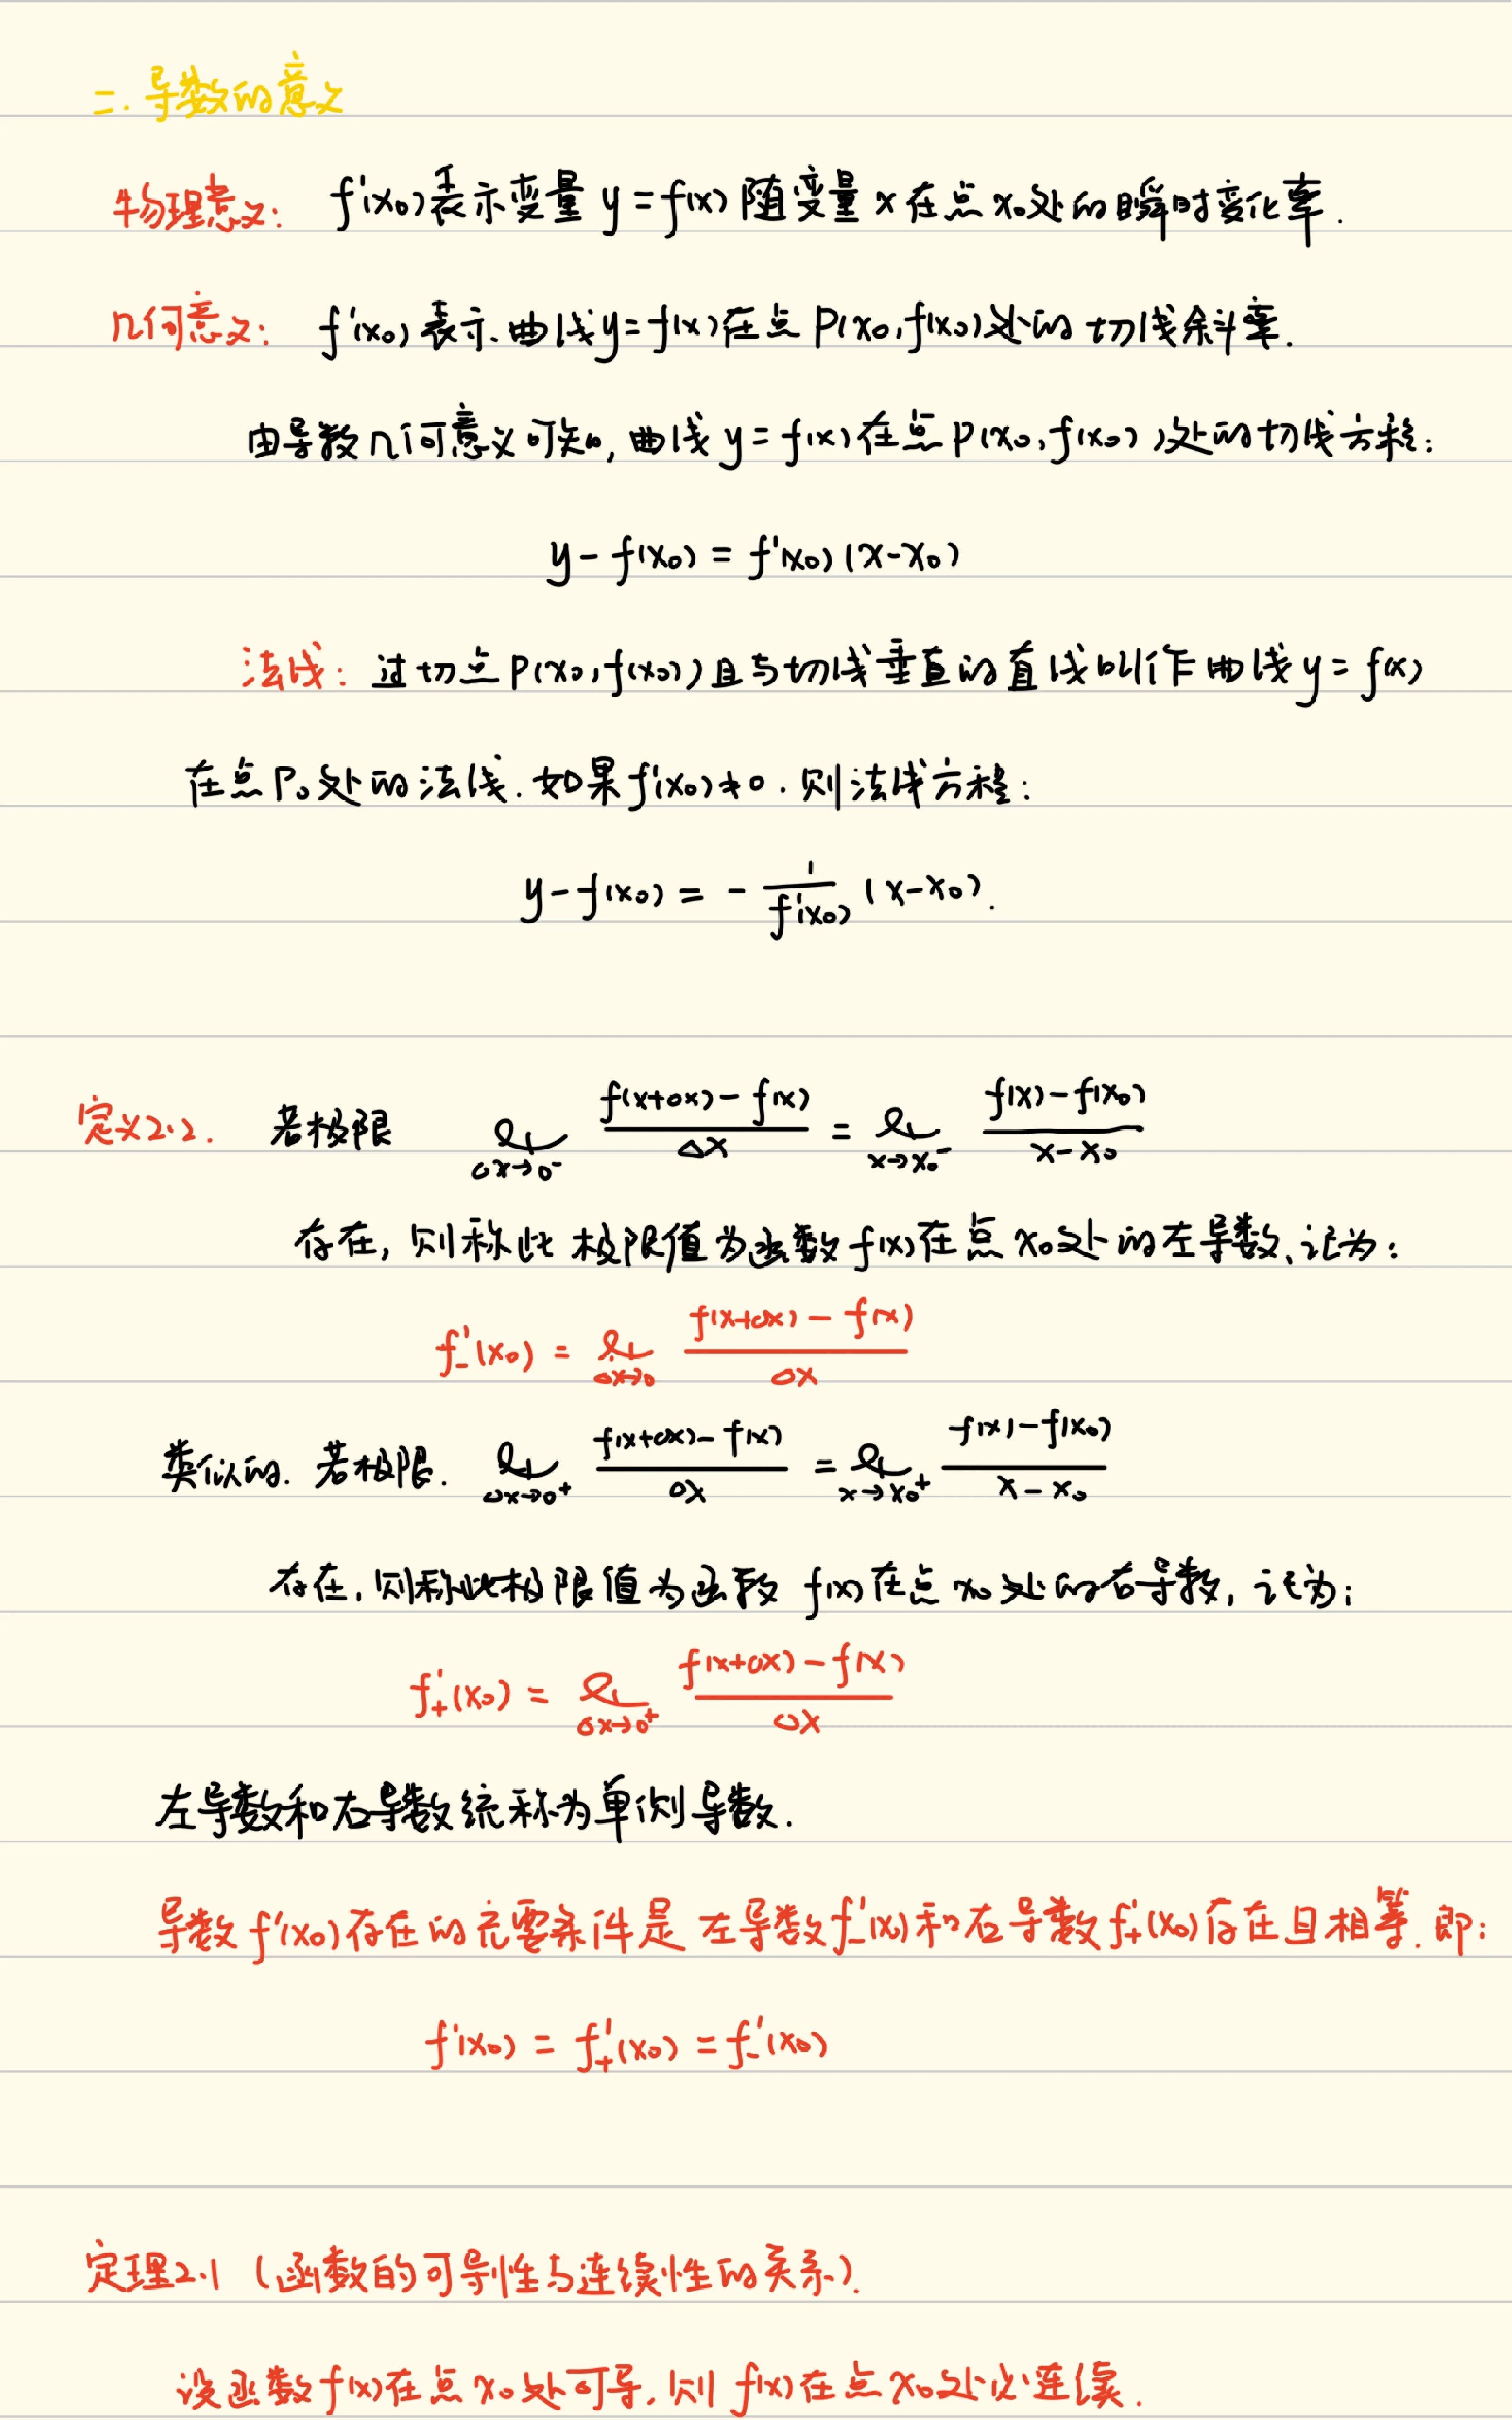 二.导数的意义
物理意义: f'(x₀)表示变量 y=f(x) 随变量 x 在点 x₀处的瞬时变化率.
几何意义: f'(x₀) 表示.曲线y=f(x)在点 P(x₀,f(x₀)处的切线斜率.
由导数几何意义可知,曲线 y=f(x)在点P(x₀,f(x₀))处的切线方程:
y-f(x₀)=f'(x₀)(x-x₀)
法线: 过切点P(x₀,f(x₀))且与切线垂直的直线叫作曲线y=f(x)
在点P₀处的法线.如果f'(x₀)≠0.则法线方程:
y-f(x₀)= - 1/f'(x₀) (x-x₀).
定义2.2. 若极限 lim Δx→0⁻ (f(x+Δx)-f(x))/Δx = lim x→x₀⁻ (f(x)-f(x₀))/(x-x₀)
存在,则称此极限值为函数f(x)在点x₀处的左导数,记为:
f₋'(x₀) = lim Δx→0 (f(x+Δx)-f(x))/Δx
类似的.若极限. lim Δx→0⁺ (f(x+Δx)-f(x))/Δx = lim x→x₀⁺ (f(x)-f(x₀))/(x-x₀)
存在,则称此极限值为函数 f(x)在点x₀处的右导数,记为:
f₊'(x₀) = lim Δx→0⁺ (f(x+Δx)-f(x))/Δx
左导数和右导数统称为单侧导数.
导数f'(x₀)存在的充要条件是左导数f₋'(x)和右导数f₊'(x₀)存在且相等.即:
f'(x₀) = f₊'(x₀) = f₋'(x₀)
定理2.1 (函数的可导性与连续性的关系).
设函数f(x)在点x₀处可导,则 f(x)在点x₀处必连续.